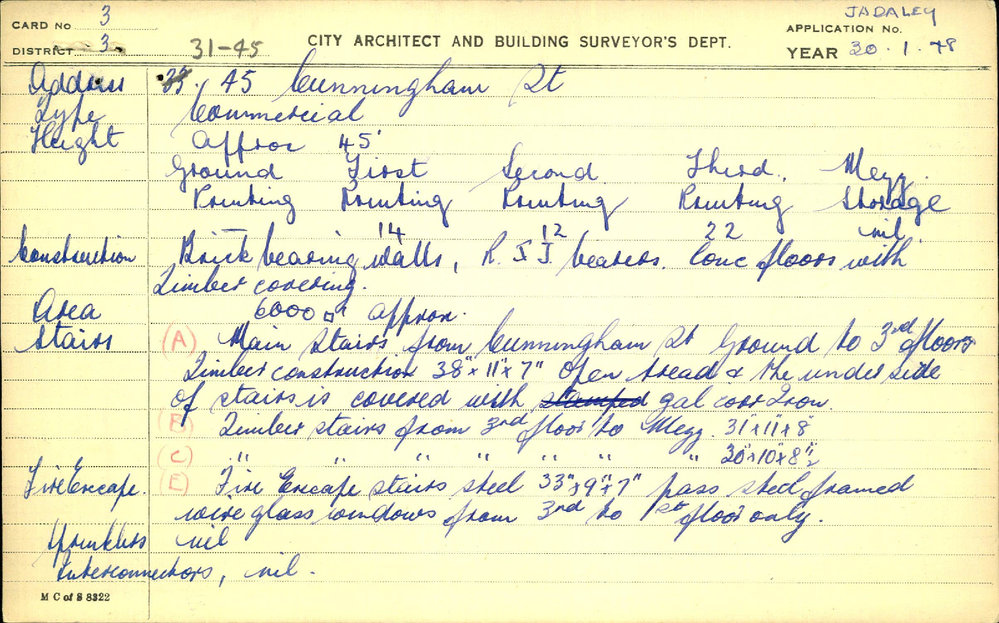 CARD No 3
DISTRICT 3
31-45
CITY ARCHITECT AND BUILDING SURVEYOR'S DEPT.
JADALEY
APPLICATION No.
YEAR 30.1.48
Address 45 Cunningham St
Type Commercial
Height Approx 45'
Ground First Second Third. Mezz.
Printing Printing Printing Printing Storage
14 12 22 nil
Construction Brick bearing walls, R.S.J bearers. Conc floors with
Timber covering.
Area 6000 □' approx.
Stairs (A) Main Stairs from Cunningham St Ground to 3rd floors
Timber construction 38" x 11" x 7" Open tread & the under side
of stairs is covered with stamped gal corr Iron.
(B) Timber stairs from 3rd floor to Mezz. 31" x 11" x 8"
(C) " " " " " " " 20" x 10" x 8½"
Fire Escape. (E) Fire Escape stairs steel 33" x 9" x 7" pass steel framed
wire glass windows from 3rd to 1st floor only.
Sprinklers nil
Interconnectors, nil.
M C of S 8322